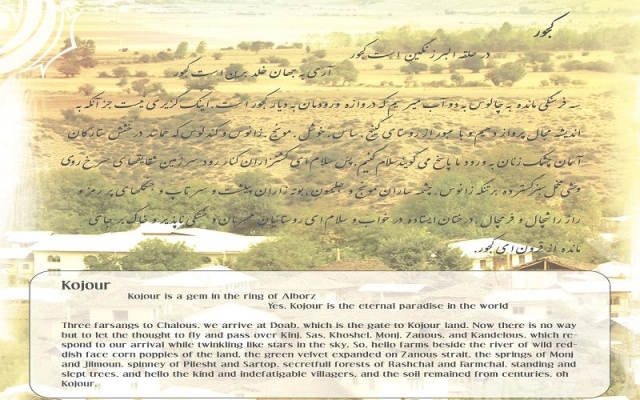 کجور
در حلقه البرز نگین است کجور
آری به جهان خلد برین است کجور
سه فرسنگی مانده به چالوس به دوآب میرسیم که دروازه ورودمان به دیار کجور است. اینک گزیری نیست جز آنکه به
اندیشه مجال پرواز دهیم و با عبور از روستای کینج، ساس، خوشل، مونج، زانوس و کندلوس که همانند درخشش ستارگان
آسمان چشمک زنان به ورود ما پاسخ می گویند سلام کنیم. پس سلام ای کشتزاران کنار رود سرزمین شقایقهای سرخ روی
وحشی مخمل سبز گسترده بر تنگه زانوس، چشمه ساران مونج و جلمون، بوته زاران پیلشت و سرتاپ و جنگلهای پر رمز و
راز راشچال و فرمچال، درختان ایستاده در خواب و سلام ای روستائیان مهربان و خستگی ناپذیر و خاک بر جای
مانده از قرون ای کجور.
Kojour
Kojour is a gem in the ring of Alborz
Yes, Kojour is the eternal paradise in the world
Three farsangs to Chalous, we arrive at Doab, which is the gate to Kojour land. Now there is no way
but to let the thought to fly and pass over Kinj, Sas, Khoshel, Monj, Zanous, and Kandelous, which re-
spond to our arrival while twinkling like stars in the sky. So, hello farms beside the river of wild red-
dish face corn poppies of the land, the green velvet expanded on Zanous strait, the springs of Monj
and Jilmoun, spinney of Pilesht and Sartop, secretfull forests of Rashchal and Farmchal, standing and
slept trees, and hello the kind and indefatigable villagers, and the soil remained from centuries, oh
Kojour.